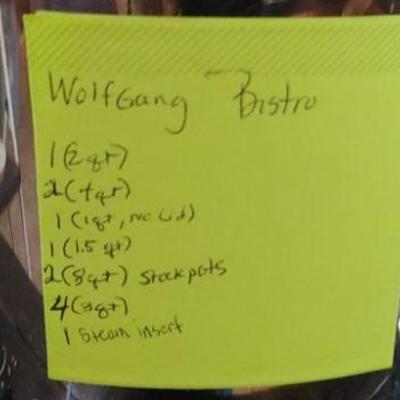 Wolfgang Bistro
1 (2qt)
2 (4qt)
1 (1qt, no lid)
1 (1.5 qt)
2 (8qt) stockpots
4 (3qt)
1 Steam insert